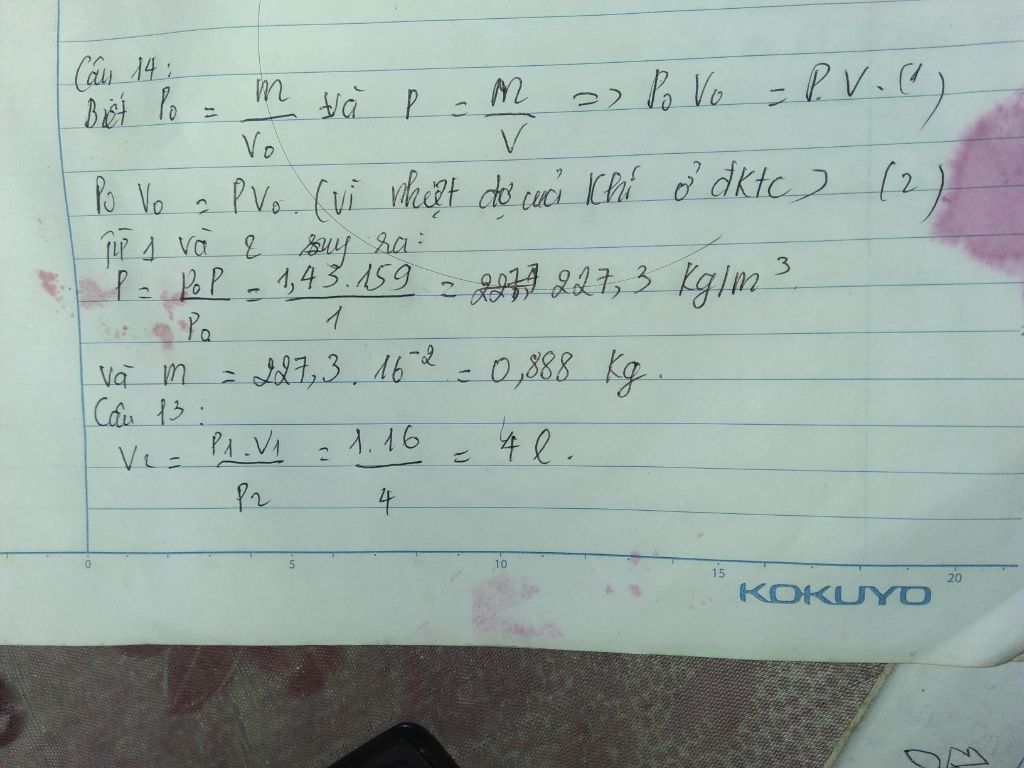 Câu 14:
Biết P₀ = m/V₀ và P = m/V => P₀ V₀ = P.V. (1)
P₀ V₀ = PV₀. (vì nhiệt độ của khí ở đktc) (2)
Từ 1 và 2 suy ra:
P = P₀P/P₀ = 1,43.159/1 = 227,3 Kg/m³.
và m = 227,3 . 16⁻² = 0,888 Kg.
Câu 13:
V₂ = P1.V1/P2 = 1.16/4 = 4 l.
0 5 10 15 20
KOKUYO